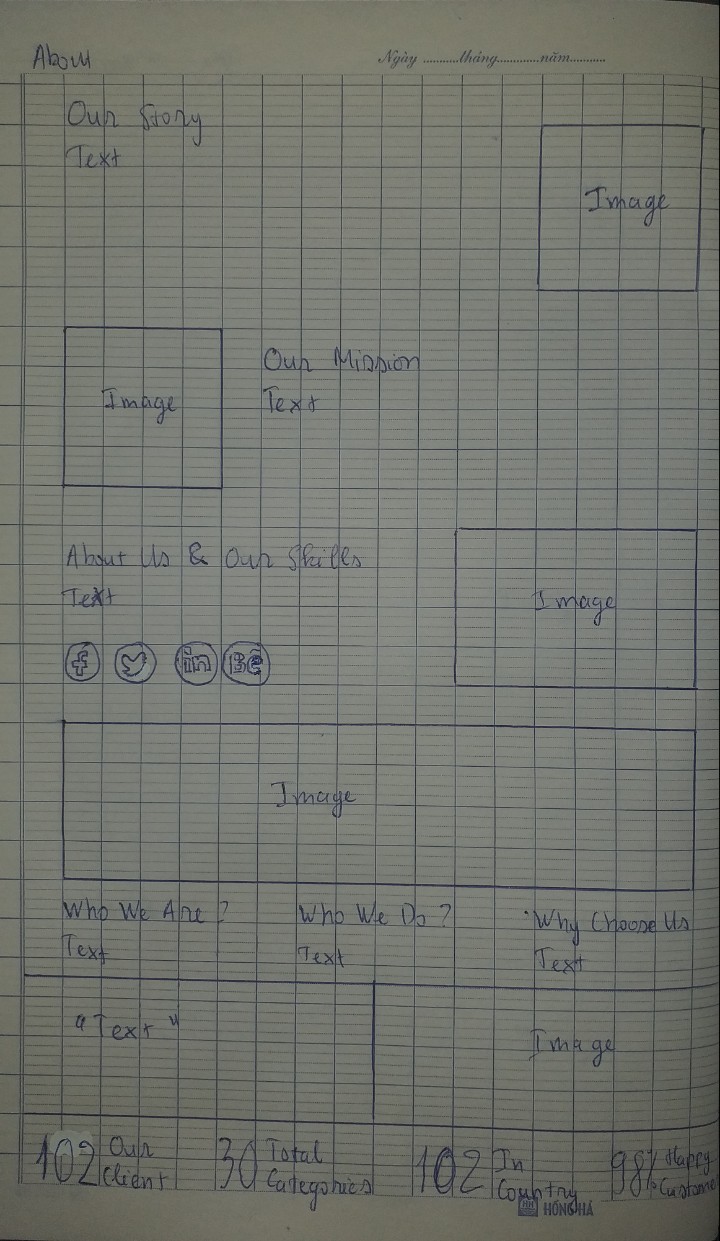 About
Ngày ..........tháng............năm..........
Our Story
Text
Image
Image
Our Mission
Text
About Us & Our Skills
Text
Image
f
in
Bē
Image
Who We Are ?
Text
Who We Do ?
Text
Why Choose Us
Text
"Text"
Image
102 Our
Client
30 Total
Categories
102 In
Country
98% Happy
Custome
HH HỒNG HÀ